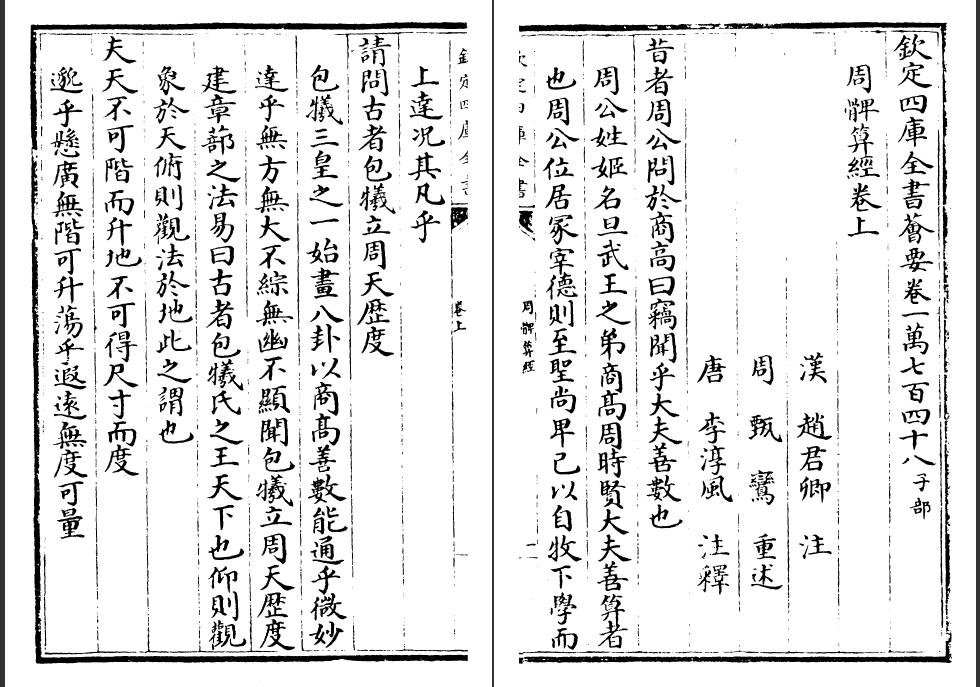 欽定四庫全書薈要卷一萬七百四十八 子部
周髀算經卷上
漢 趙君卿 注
周 甄鸞 重述
唐 李淳風 注釋
昔者周公問於商高曰竊聞乎大夫善數也
周公姓姬名旦武王之弟商髙周時賢大夫善算者
也周公位居冡宰德則至聖尚卑己以自牧下學而
周髀算經
欽定四庫全書
卷上
上達况其凡乎
請問古者包犧立周天歴度
包犧三皇之一始畫八卦以商髙善數能通乎微妙
達乎無方無大不綜無幽不顯聞包犧立周天歴度
建章蔀之法易曰古者包犧氏之王天下也仰則觀
象於天俯則觀法於地此之謂也
夫天不可階而升地不可得尺寸而度
邈乎懸廣無階可升蕩乎遐遠無度可量